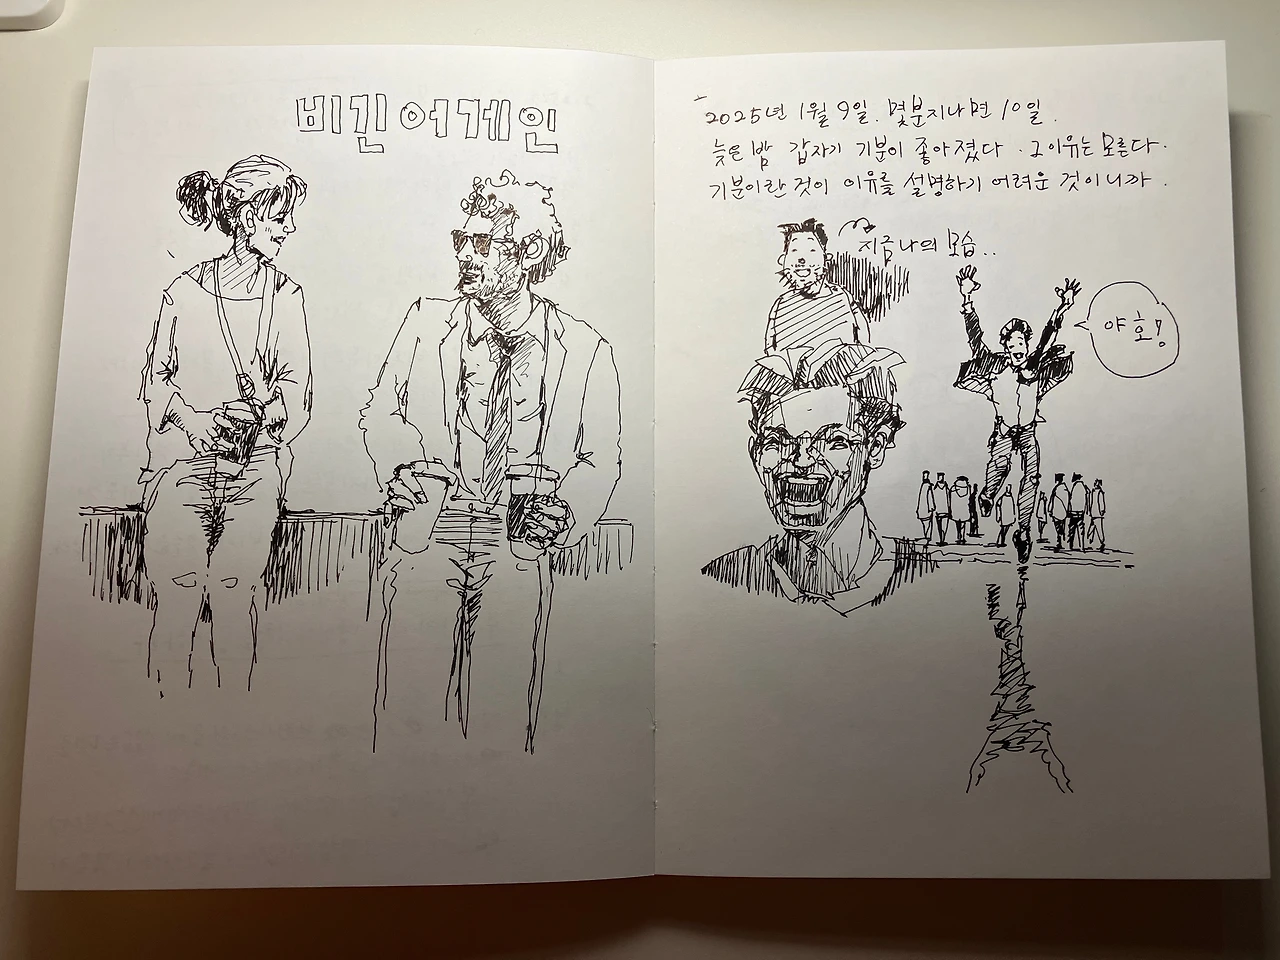 비긴어게인
2025년 1월 9일. 몇분지나면 10일.
늦은 밤 갑자기 기분이 좋아졌다. 그 이유는 모른다.
기분이란 것이 이유를 설명하기 어려운 것이니까.
지금 나의 모습..
야호!